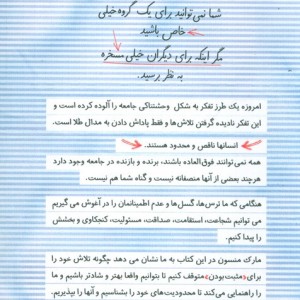 شما نمی‌توانید برای یک گروه خیلی
خاص باشید
مگر اینکه برای دیگران خیلی مسخره
به نظر برسید.
امروزه یک طرز تفکر به شکل وحشتناکی جامعه را آلوده کرده است و
این تفکر نادیده گرفتن تلاش‌ها و فقط پاداش دادن به مدال طلا است.
انسانها ناقص و محدود هستند.
همه نمی‌توانند فوق‌العاده باشند، برنده و بازنده در جامعه وجود دارد
هرچند بعضی از آنها منصفانه نیست و گناه شما هم نیست.
هنگامی که ما ترس‌ها، گسل‌ها و عدم اطمینانمان را در آغوش می گیریم
می توانیم شجاعت، استقامت، صداقت، مسئولیت، کنجکاوی و بخشش
را پیدا کنیم.
مارک منسون در این کتاب به ما نشان می دهد چگونه تلاش خود را
برای «مثبت‌بودن» متوقف کنیم تا بتوانیم واقعا بهتر و شادتر باشیم و ما
را راهنمایی می‌کند تا محدودیت‌های خود را بشناسیم و آنها را بپذیریم.